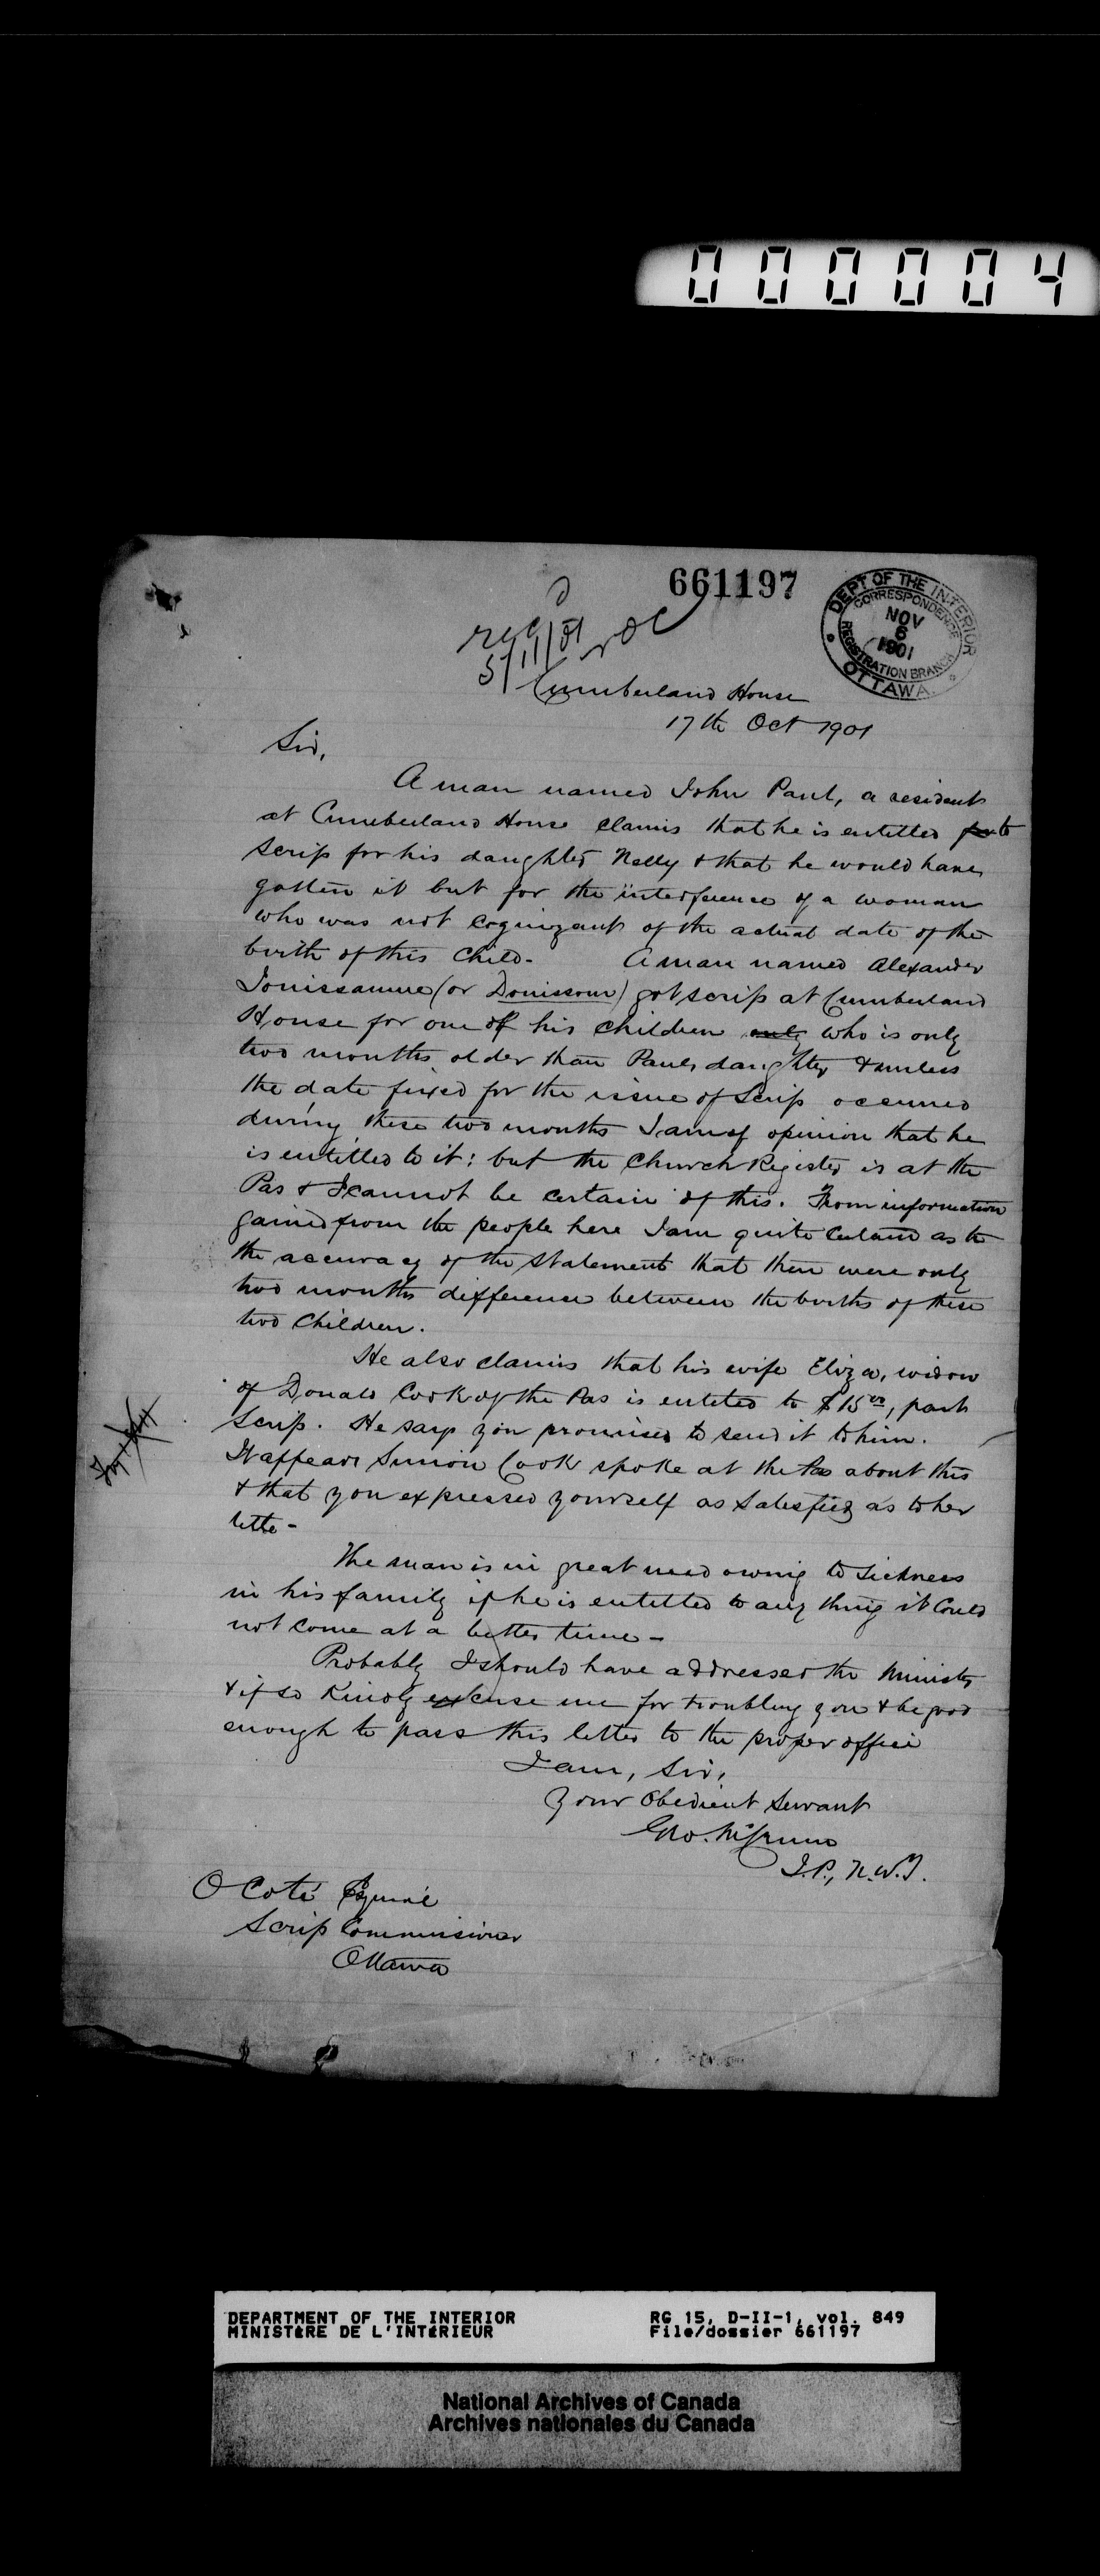 000004
661197
DEPT OF THE INTERIOR
CORRESPONDENCE
NOV
6
1901
REGISTRATION BRANCH
OTTAWA
recd
5/11/01 OC
Cumberland House
17th Oct 1901
Sir,
A man named John Paul, a resident
at Cumberland House claims that he is entitled for to
Scrip for his daughter Nelly & that he would have
gotten it but for the interference of a woman
who was not cognizant of the actual date of the
birth of this child - A man named Alexander
(or Donissoun) got scrip at Cumberland
House for one of his children only who is only
two months older than Pauls daughter & unless
the date fixed for the issue of Scrip occurred
during these two months I am of opinion that he
is entitled to it; but the Church Register is at the
Pas & I cannot be certain of this. From information
gained from the people here I am quite certain as to
the accuracy of the statement that there were only
two months difference between the births of these
two children.
He also claims that his wife Eliza, widow
of Donald Cook of the Pas is entitled to $15 00, part
Scrip. He says you promised to send it to him.
It appears Simion Cook spoke at the Pas about this
& that you expressed yourself as satisfied as to her
title -
The man is in great need owing to sickness
in his family if he is entitled to any thing it could
not come at a better time -
Probably I should have addressed the Minister
& if so kindly excuse me for troubling you & be good
enough to pass this letter to the proper office
I am, Sir,
Your Obedient Servant
Geo.
J.P., N.W.T.
O Coté Esquire
Scrip Commissioner
Ottawa
DEPARTMENT OF THE INTERIOR
MINISTÈRE DE L'INTÉRIEUR
RG 15, D-II-1, vol. 849
File/dossier 661197
National Archives of Canada
Archives nationales du Canada